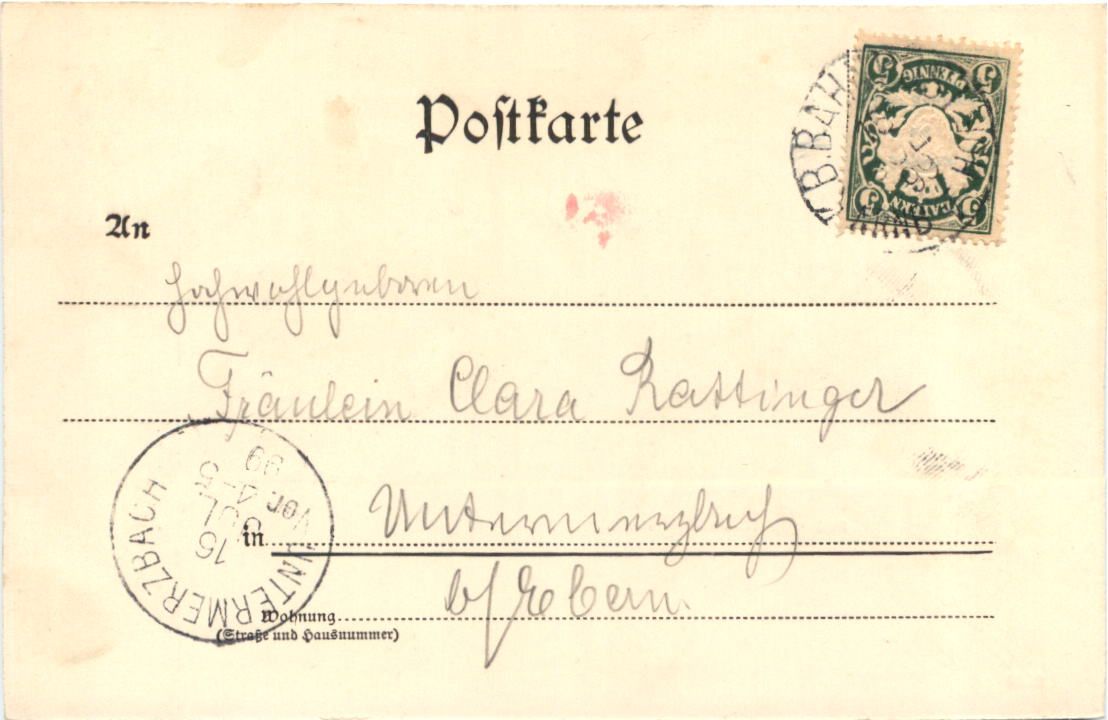 Postkarte
K.B.BAH
5 PFENNIG 5
5 BAYERN 5
An
Hochwohlgeboren
Fräulein Clara Rattinger
in Untermerzbach
b/Ebern.
UNTERMERZBACH
15
JUL
Vor. 4-5
99
Wohnung
(Straße und Hausnummer)